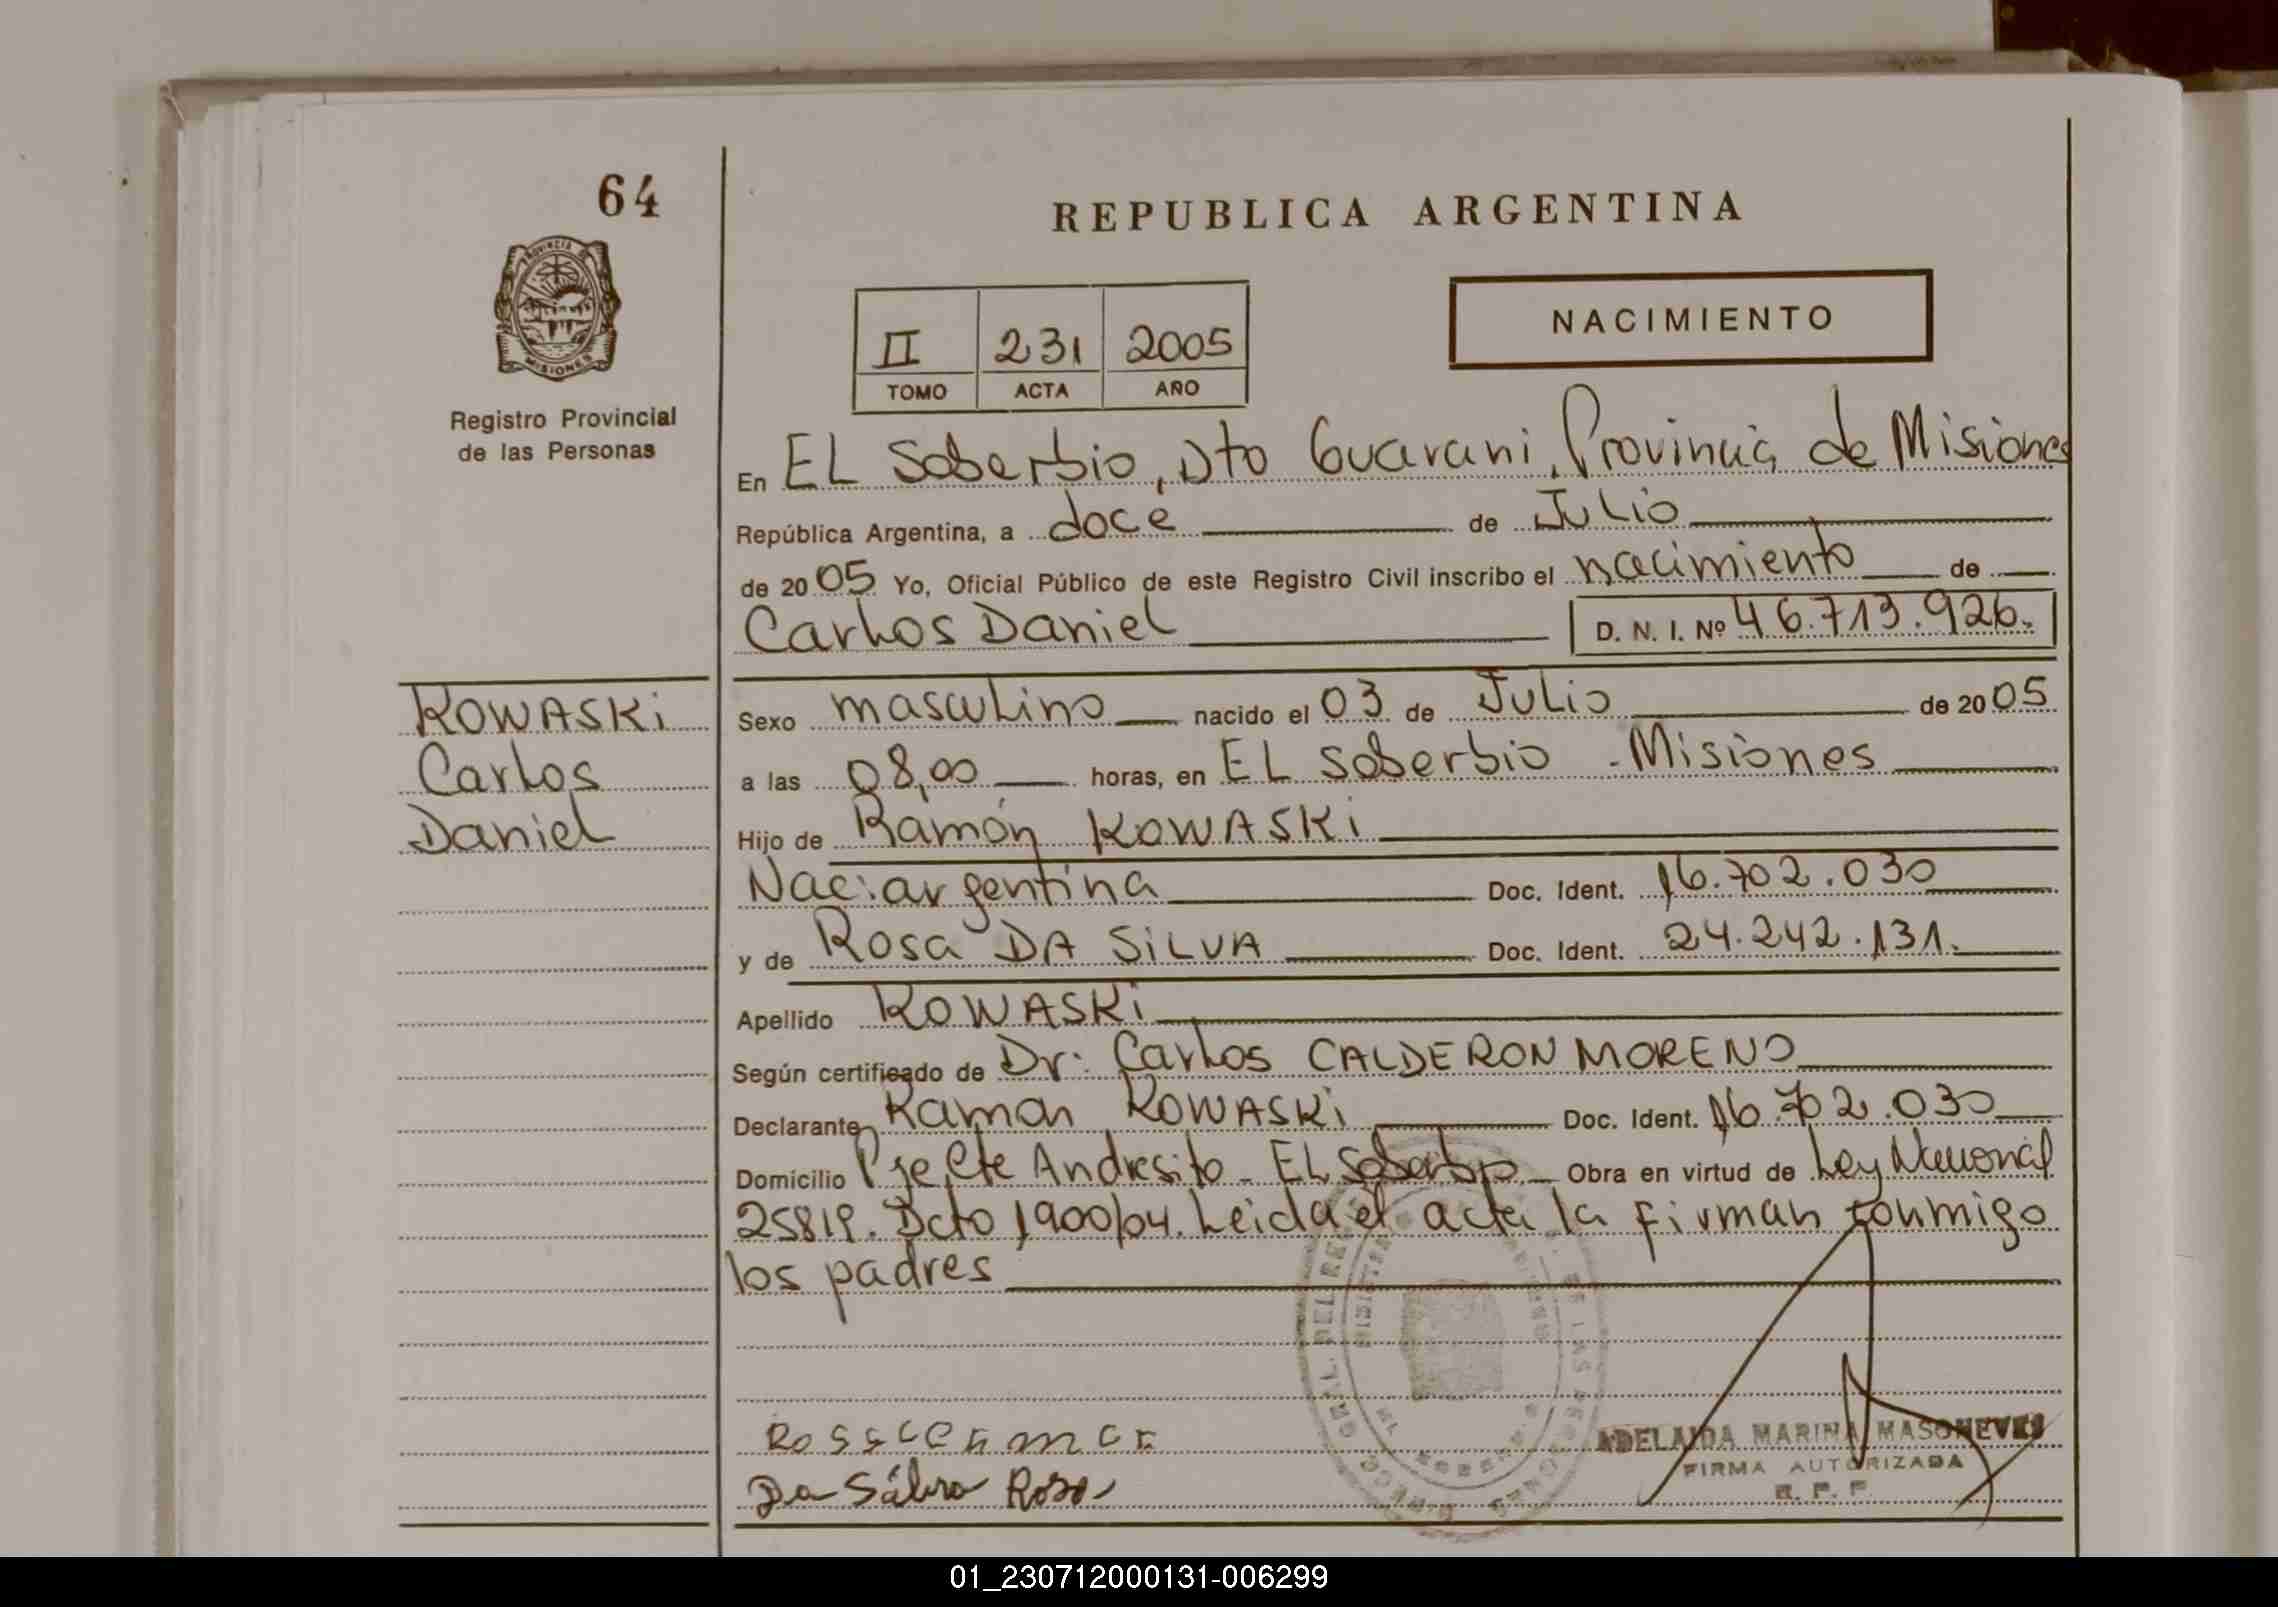 64
REPUBLICA ARGENTINA
PROVINCIA DE
MISIONES
Registro Provincial
de las Personas
NACIMIENTO
II 231 2005
TOMO ACTA AÑO
En EL Soberbio, Dto Guarani, Provincia de Misiones
República Argentina, a doce de Julio
de 2005 Yo, Oficial Público de este Registro Civil inscribo el nacimiento de
Carlos Daniel D. N. I. Nº 46.713.926.
KOWASKi
Carlos
Daniel
Sexo masculino nacido el 03 de Julio de 2005
a las 08,00 horas, en EL Soberbio - Misiones
Hijo de Ramón KOWASKi
Nac: argentina Doc. Ident. 16.702.030
y de Rosa DA SiLVA Doc. Ident. 24.242.131.
Apellido KOWASKi
Según certificado de Dr: Carlos CALDERON MORENO
Declarante Ramon KOWASKi Doc. Ident. 16.702.030
Domicilio Pje Cte Andresito - EL Soberbio Obra en virtud de Ley Nacional
25819. Dcto 1900/04. Leida el acta la firman conmigo
los padres
Da Silva Rosa
ADELAIDA MARINA MASONEVES
FIRMA AUTORIZADA
R. P. P.
01_230712000131-006299